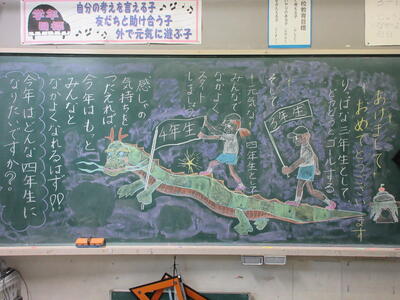 学年目標
自分の考えを言える子
友だちと助け合う子
外で元気に遊ぶ子
学校教育目標
あけまして
おめでとうございます
りっぱな三年生として
どうどうとゴールする。
3年生
そして
元気な四年生と
みんなで
なかよく
スタート
しましょう
4年生
感しゃの
気持ちを
つたえれば
今年はもっと
みんなと
なかよくなれるはず!!
今年はどんな四年生に
なりたいですか??